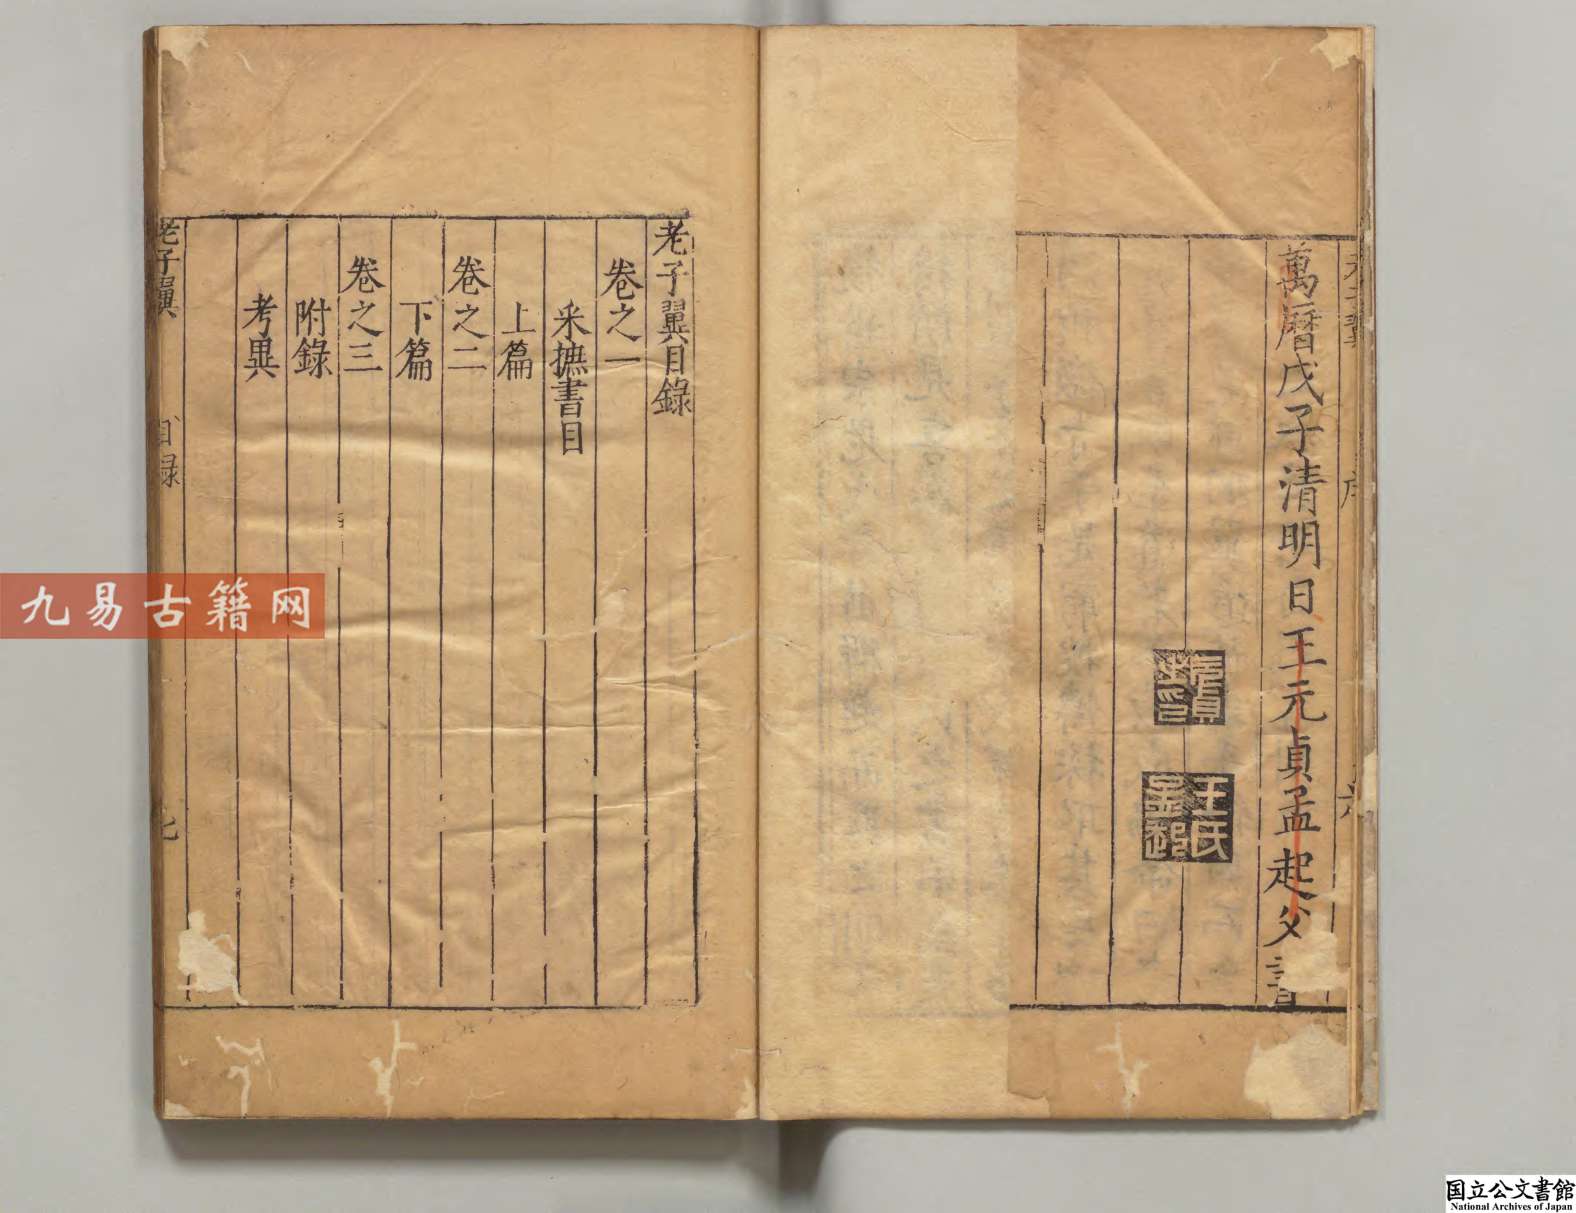 萬曆戊子清明日王元貞孟起父書
元貞之印
王氏孟起
老子翼目錄
卷之一
采摭書目
上篇
卷之二
下篇
卷之三
附錄
考異
老子翼
目錄
七
九易古籍网
国立公文書館
National Archives of Japan